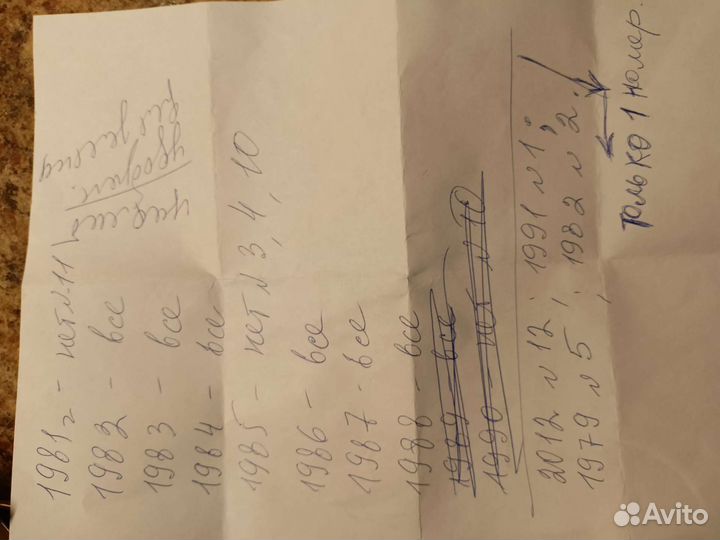 1981г - нет №11
1982 - все
1983 - все
1984 - все
1985 - нет № 3, 4, 10
1986 - все
1987 - все
1988 - все
1989 все
1990 - нет №10
2012 №12; 1991 №1;
1979 №5; 1982 №2.
только 1 номер.
Avito